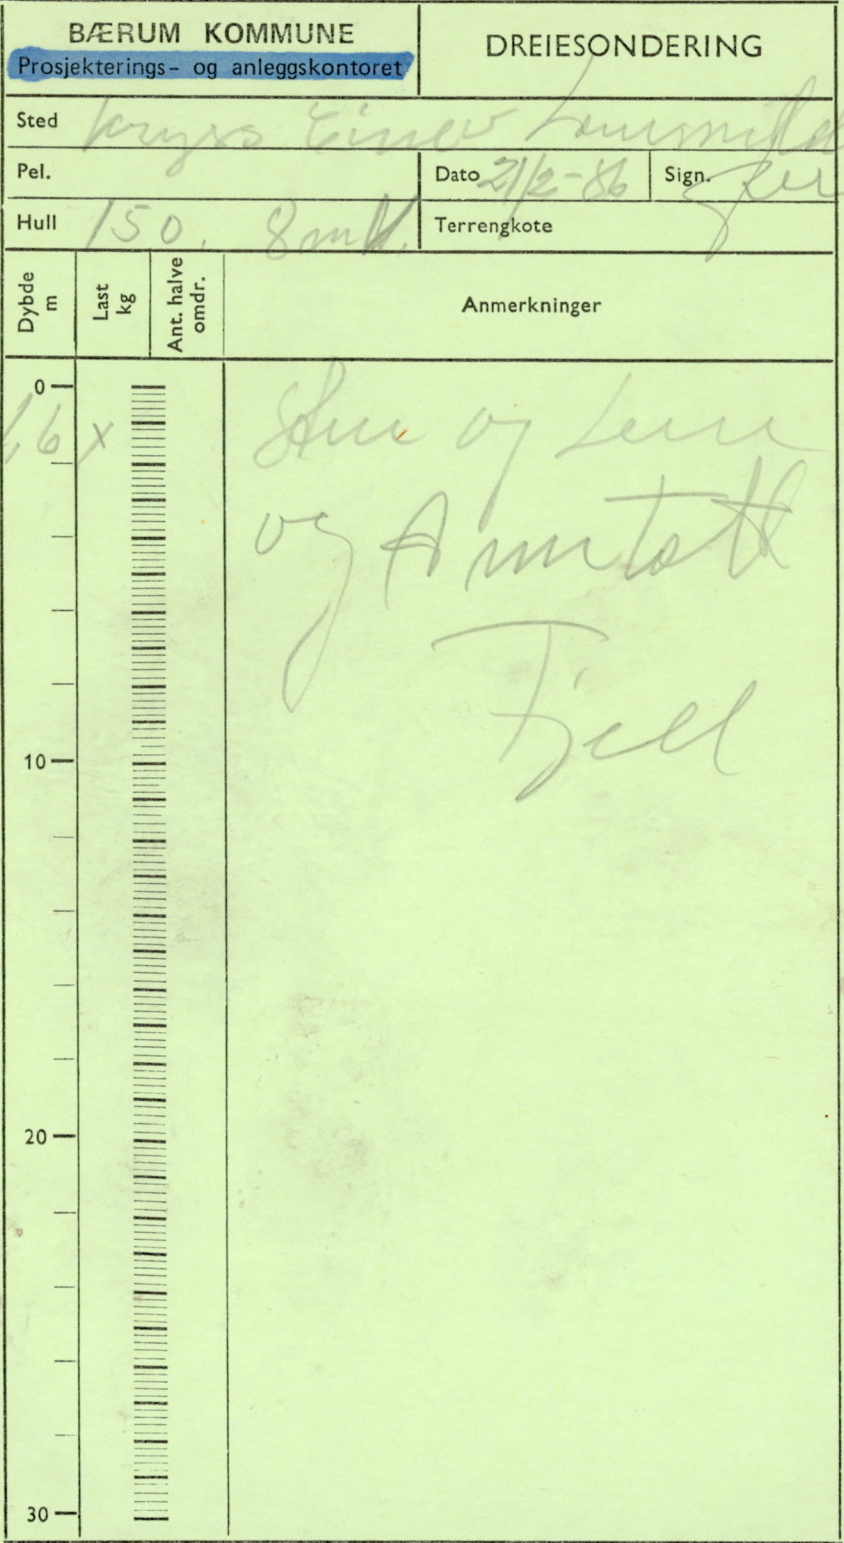 BÆRUM KOMMUNE
Prosjekterings- og anleggskontoret
DREIESONDERING
Sted kryss Einer
Pel.
Dato 21/2-86 Sign.
Hull 150. 8
Terrengkote
Dybde m
Last kg
Ant. halve omdr.
Anmerkninger
0
1,6 x
Sten og Leire
og Antatt
Fjell
10
20
30